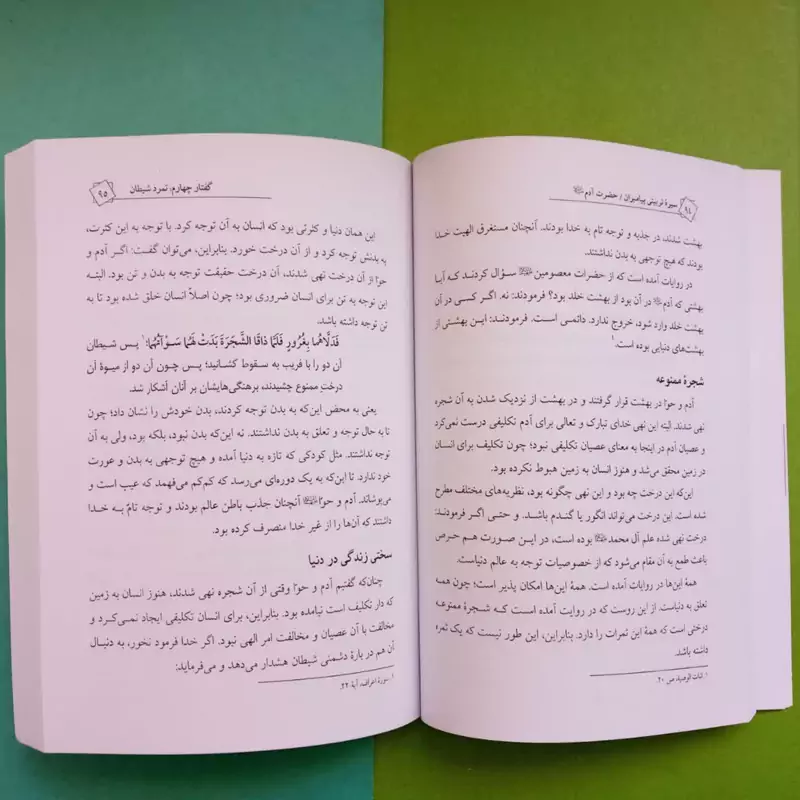 ۹۴ سیرهٔ تربیتی پیامبران / حضرت آدم
بهشت شدند، در جذبه و توجه تام به خدا بودند. آنچنان مستغرق الهیت خدا
بودند که هیچ توجهی به بدن نداشتند.
در روایات آمده است که از حضرات معصومین سؤال کردند که آیا
بهشتی که آدم در آن بود از بهشت خلد بود؟ فرمودند: نه. اگر کسی در آن
بهشت خلد وارد شود، خروج ندارد. دائمی است. فرمودند: این بهشتی از
بهشت‌های دنیایی بوده است.۱
شجرهٔ ممنوعه
آدم و حوّا در بهشت قرار گرفتند و در بهشت از نزدیک شدن به آن شجره
نهی شدند. البته این نهی خدای تبارک و تعالی برای آدم تکلیفی درست نمی‌کرد
و عصیان آدم در اینجا به معنای عصیان تکلیفی نبود؛ چون تکلیف برای انسان
در زمین محقق می‌شد و هنوز انسان به زمین هبوط نکرده بود.
این‌که این درخت چه بود و این نهی چگونه بود، نظریه‌های مختلف مطرح
شده است. این درخت می‌تواند انگور یا گندم باشد. و حتی اگر فرمودند:
درخت نهی شده علم آل محمد بوده است، در این صورت هم حرص
باعث طمع به آن مقام می‌شود که از خصوصیات توجه به عالم دنیاست.
همهٔ این‌ها در روایات آمده است. همهٔ این‌ها امکان پذیر است؛ چون همه
تعلق به دنیاست. از این روست که در روایت آمده است که شجرهٔ ممنوعه
درختی است که همهٔ این ثمرات را دارد. بنابراین، این طور نیست که یک ثمره
داشته باشد.
۱. اثبات الوصیه، ص ۲۰.
گفتار چهارم: تمرد شیطان ۹۵
این همان دنیا و کثرتی بود که انسان به آن توجه کرد. با توجه به این کثرت،
به بدنش توجه کرد و از آن درخت خورد. بنابراین، می‌توان گفت: اگر آدم و
حوّا از آن درخت نهی شدند، آن درخت حقیقت توجه به بدن و تن بود. البته
این توجه به تن برای انسان ضروری بود؛ چون اصلاً انسان خلق شده بود تا به
تن توجه داشته باشد.
فَدَلَّاهُمَا بِغُرُورٍ فَلَمَّا ذَاقَا الشَّجَرَةَ بَدَتْ لَهُمَا سَوْآتُهُمَا؛۱ پس شیطان
آن دو را با فریب به سقوط کشانید؛ پس چون آن دو از میوهٔ آن
درختِ ممنوع چشیدند، برهنگی‌هایشان بر آنان آشکار شد.
یعنی به محض این‌که به بدن توجه کردند، بدن خودش را نشان داد؛ چون
تا به حال توجه و تعلق به بدن نداشتند. نه این‌که بدن نبود، بلکه بود، ولی به آن
توجه نداشتند. مثل کودکی که تازه به دنیا آمده و هیچ توجهی به بدن و عورت
خود ندارد. تا این‌که به یک دوره‌ای می‌رسد که کم‌کم می‌فهمد که عیب است و
می‌پوشاند. آدم و حوّا آنچنان جذب باطن عالم بودند و توجه تامّ به خدا
داشتند که آن‌ها را از غیر خدا منصرف کرده بود.
سختی زندگی در دنیا
چنان‌که گفتیم آدم و حوّا وقتی از آن شجره نهی شدند، هنوز انسان به زمین
که دار تکلیف است نیامده بود. بنابراین، برای انسان تکلیفی ایجاد نمی‌کرد و
مخالفت با آن عصیان و مخالفت امر الهی نبود. اگر خدا فرمود نخور، به دنبال
آن هم در بارهٔ دشمنی شیطان هشدار می‌دهد و می‌فرماید:
۱. سورهٔ اعراف، آیهٔ ۲۲.